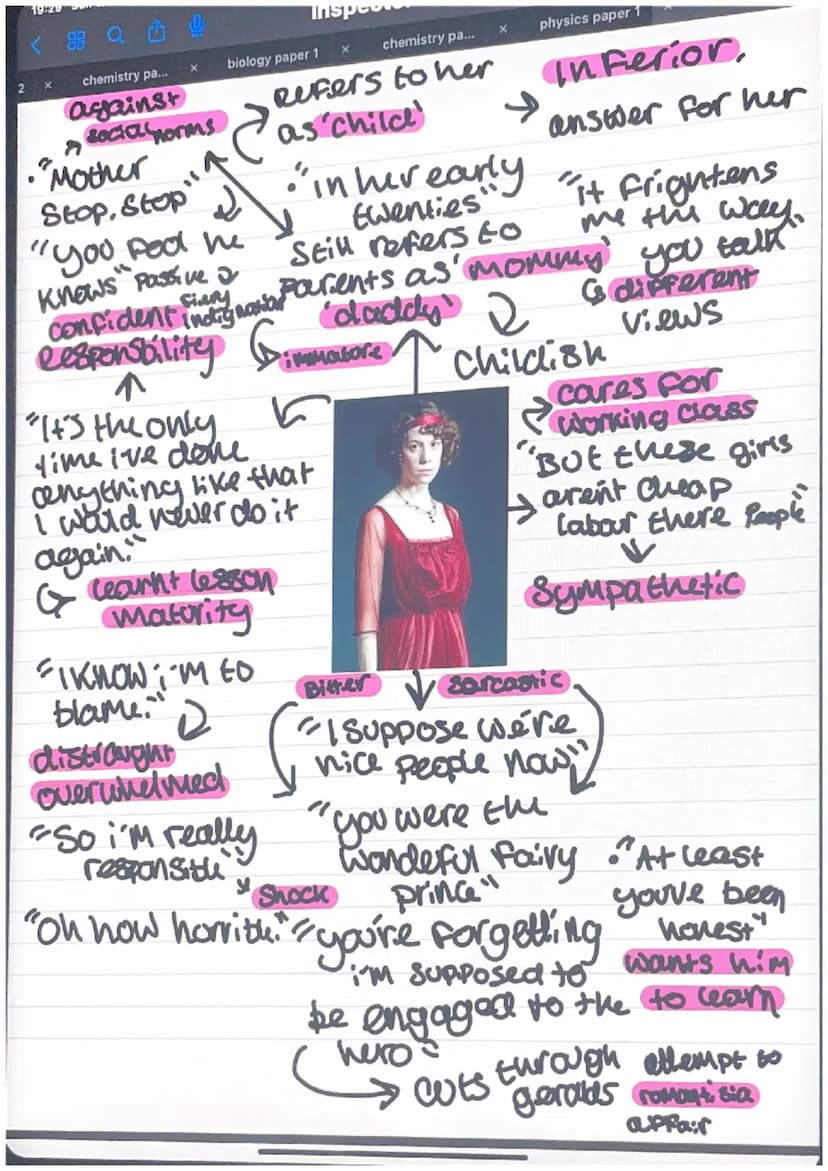 19:29
Inspecto
2
chemistry pa...
biology paper 1
chemistry pa...
physics paper 1
against
social norms
refers to her
as 'child'
Inferior.
answer for her
"Mother
Stop. Stop"
"you fool he
knows" Passive
fiery
indignation
confident
Responsibility
"in her early
twenties"
Still refers to
parents as 'mommy'
'daddy'
immature
childish
"it frightens
me the way
you talk"
different
views
cares for
working class
"But these girls
arent cheap
labour there People"
Sympathetic
"It's the only
time i've done
anything like that
I would never do it
again."
learnt lesson
maturity
"I know i'm to
blame."
distraught
overwhelmed
"So i'm really
responsible"
Shock
"Oh how horrible."
Bitter
Sarcastic
"I suppose we're
nice people now"
"you were the
wonderful fairy
prince"
"you're forgetting
i'm supposed to
be engaged to the
hero"
cuts through
geralds
attempt to
affair
"At least
you've been
honest"
wants him
to learn